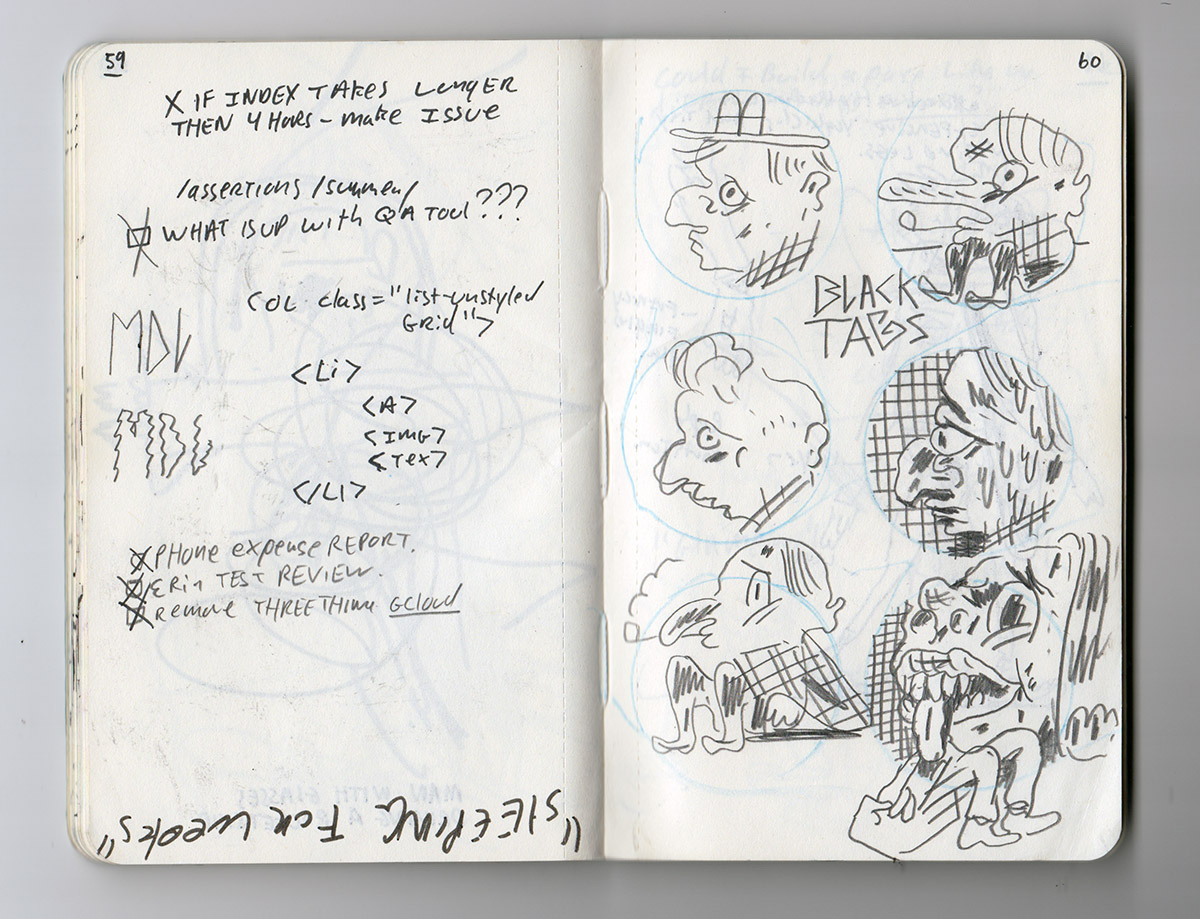 59
X IF INDEX TAKES LONGER
THEN 4 HOURS - MAKE ISSUE
/assertions/summary/
WHAT IS UP with QA TOOL???
<OL class="list-unstyled
GRID">
MDL
<Li>
MDL
<A>
<IMG>
<Tex>
</LI>
PHone expense REPORT.
ERin TEST REVIEW.
remove THREETHING GCloud
"SLEEPING FOR WEEKS"
60
BLACK
TABS